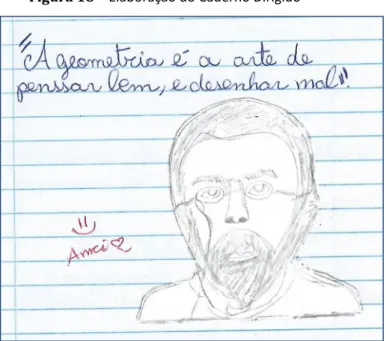 Figura 18 – Elaboração do Caderno Dirigido
"A geometria é a arte de
penssar bem, e desenhar mal".
Amei